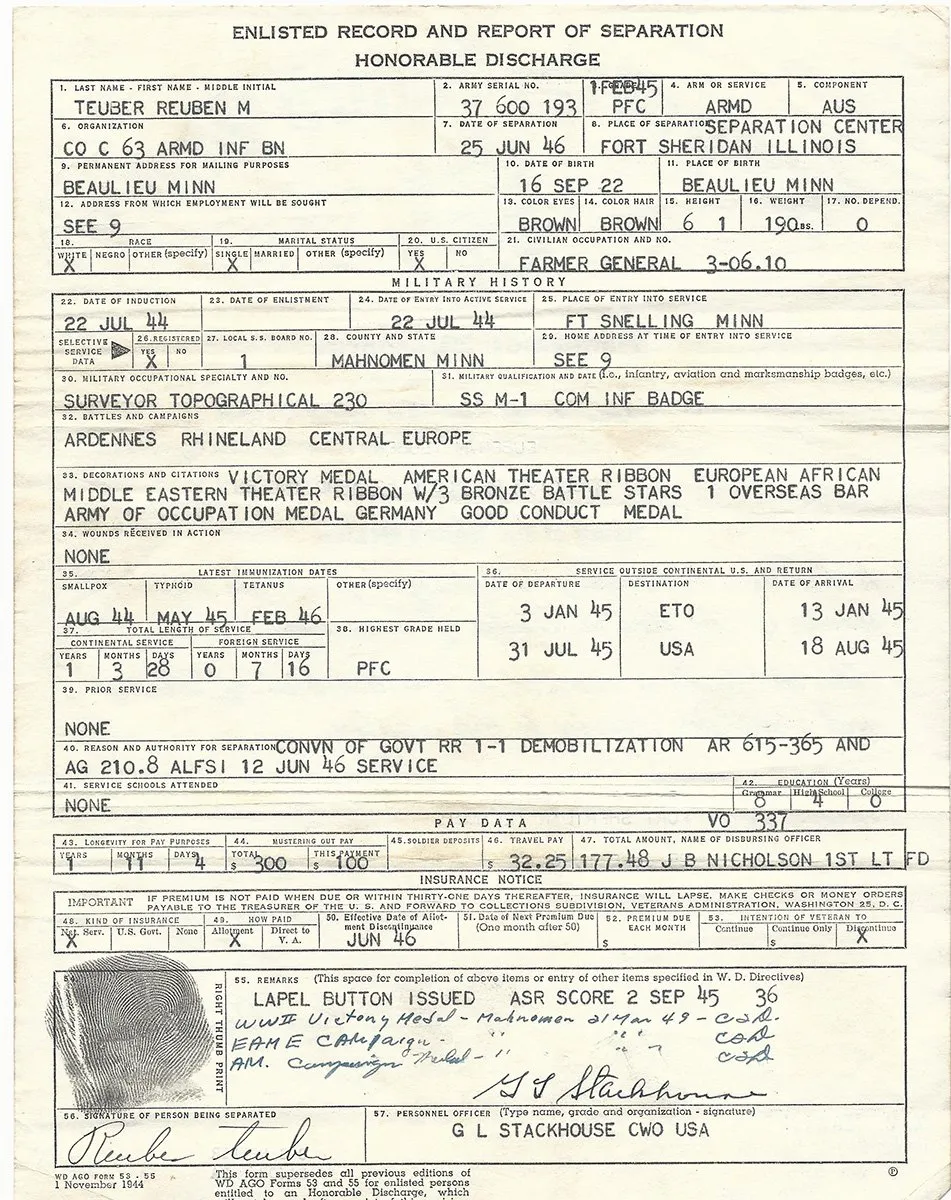 ENLISTED RECORD AND REPORT OF SEPARATION
HONORABLE DISCHARGE
1. LAST NAME - FIRST NAME - MIDDLE INITIAL 2. ARMY SERIAL NO. 1FEB45 4. ARM OR SERVICE 5. COMPONENT
TEUBER REUBEN M 37 600 193 PFC ARMD AUS
6. ORGANIZATION 7. DATE OF SEPARATION 8. PLACE OF SEPARATION SEPARATION CENTER
CO C 63 ARMD INF BN 25 JUN 46 FORT SHERIDAN ILLINOIS
9. PERMANENT ADDRESS FOR MAILING PURPOSES 10. DATE OF BIRTH 11. PLACE OF BIRTH
BEAULIEU MINN 16 SEP 22 BEAULIEU MINN
12. ADDRESS FROM WHICH EMPLOYMENT WILL BE SOUGHT 13. COLOR EYES 14. COLOR HAIR 15. HEIGHT 16. WEIGHT 17. NO. DEPEND.
SEE 9 BROWN BROWN 6 1 190 LBS. 0
18. RACE 19. MARITAL STATUS 20. U.S. CITIZEN 21. CIVILIAN OCCUPATION AND NO.
WHITE NEGRO OTHER (specify) SINGLE MARRIED OTHER (specify) YES NO
X X X FARMER GENERAL 3-06.10
MILITARY HISTORY
22. DATE OF INDUCTION 23. DATE OF ENLISTMENT 24. DATE OF ENTRY INTO ACTIVE SERVICE 25. PLACE OF ENTRY INTO SERVICE
22 JUL 44 22 JUL 44 FT SNELLING MINN
SELECTIVE SERVICE DATA 26. REGISTERED YES NO 27. LOCAL S.S. BOARD NO. 28. COUNTY AND STATE 29. HOME ADDRESS AT TIME OF ENTRY INTO SERVICE
X 1 MAHNOMEN MINN SEE 9
30. MILITARY OCCUPATIONAL SPECIALTY AND NO. 31. MILITARY QUALIFICATION AND DATE (i.e., infantry, aviation and marksmanship badges, etc.)
SURVEYOR TOPOGRAPHICAL 230 SS M-1 COM INF BADGE
32. BATTLES AND CAMPAIGNS
ARDENNES RHINELAND CENTRAL EUROPE
33. DECORATIONS AND CITATIONS VICTORY MEDAL AMERICAN THEATER RIBBON EUROPEAN AFRICAN
MIDDLE EASTERN THEATER RIBBON W/3 BRONZE BATTLE STARS 1 OVERSEAS BAR
ARMY OF OCCUPATION MEDAL GERMANY GOOD CONDUCT MEDAL
34. WOUNDS RECEIVED IN ACTION
NONE
35. LATEST IMMUNIZATION DATES 36. SERVICE OUTSIDE CONTINENTAL U.S. AND RETURN
SMALLPOX TYPHOID TETANUS OTHER (specify) DATE OF DEPARTURE DESTINATION DATE OF ARRIVAL
AUG 44 MAY 45 FEB 46 3 JAN 45 ETO 13 JAN 45
37. TOTAL LENGTH OF SERVICE 38. HIGHEST GRADE HELD
CONTINENTAL SERVICE FOREIGN SERVICE 31 JUL 45 USA 18 AUG 45
YEARS MONTHS DAYS YEARS MONTHS DAYS
1 3 28 0 7 16 PFC
39. PRIOR SERVICE
NONE
40. REASON AND AUTHORITY FOR SEPARATION CONVN OF GOVT RR 1-1 DEMOBILIZATION AR 615-365 AND
AG 210.8 ALFSI 12 JUN 46 SERVICE
41. SERVICE SCHOOLS ATTENDED 42. EDUCATION (Years)
Grammar High School College
NONE 8 4 0
PAY DATA VO 337
43. LONGEVITY FOR PAY PURPOSES 44. MUSTERING OUT PAY 45. SOLDIER DEPOSITS 46. TRAVEL PAY 47. TOTAL AMOUNT, NAME OF DISBURSING OFFICER
YEARS MONTHS DAYS TOTAL THIS PAYMENT
1 11 4 $ 300 $ 100 $ 32.25 177.48 J B NICHOLSON 1ST LT FD
INSURANCE NOTICE
IMPORTANT IF PREMIUM IS NOT PAID WHEN DUE OR WITHIN THIRTY-ONE DAYS THEREAFTER, INSURANCE WILL LAPSE. MAKE CHECKS OR MONEY ORDERS
PAYABLE TO THE TREASURER OF THE U. S. AND FORWARD TO COLLECTIONS SUBDIVISION, VETERANS ADMINISTRATION, WASHINGTON 25, D. C.
48. KIND OF INSURANCE 49. HOW PAID 50. Effective Date of Allotment Discontinuance 51. Date of Next Premium Due (One month after 50) 52. PREMIUM DUE EACH MONTH 53. INTENTION OF VETERAN TO
Nat. Serv. U.S. Govt. None Allotment Direct to V. A. Continue Continue Only Discontinue
X X JUN 46 $ $ X
54.
RIGHT THUMB PRINT
55. REMARKS (This space for completion of above items or entry of other items specified in W. D. Directives)
LAPEL BUTTON ISSUED ASR SCORE 2 SEP 45 36
WWII Victory Medal - Mahnomen 21 Mar 49 -
EAME CAmpaign - " " " "
AM. Campaign Medal - " " "
G L Stackhouse
56. SIGNATURE OF PERSON BEING SEPARATED 57. PERSONNEL OFFICER (Type name, grade and organization - signature)
Reuben Teuber G L STACKHOUSE CWO USA
WD AGO FORM 53 - 55
1 November 1944
This form supersedes all previous editions of
WD AGO Forms 53 and 55 for enlisted persons
entitled to an Honorable Discharge, which